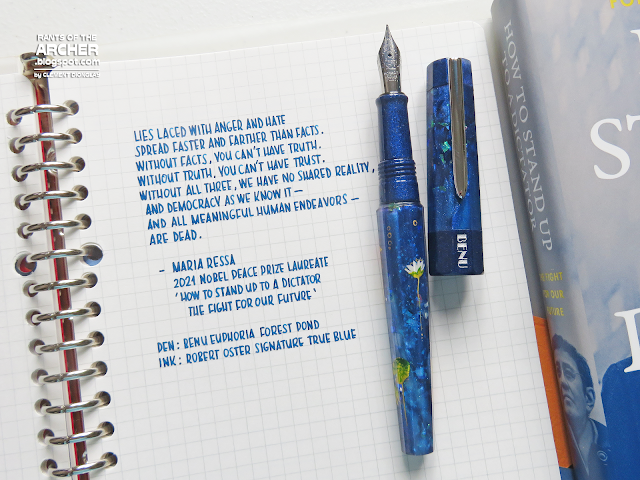 RANTS OF THE
ARCHER
.blogspot.com
by CLEMENT DIONGLAS
LIES LACED WITH ANGER AND HATE
SPREAD FASTER AND FARTHER THAN FACTS.
WITHOUT FACTS, YOU CAN'T HAVE TRUTH.
WITHOUT TRUTH, YOU CAN'T HAVE TRUST.
WITHOUT ALL THREE, WE HAVE NO SHARED REALITY,
AND DEMOCRACY AS WE KNOW IT –
AND ALL MEANINGFUL HUMAN ENDEAVORS –
ARE DEAD.
– MARIA RESSA
2021 NOBEL PEACE PRIZE LAUREATE
'HOW TO STAND UP TO A DICTATOR
THE FIGHT FOR OUR FUTURE'
PEN: BENU EUPHORIA FOREST POND
INK: ROBERT OSTER SIGNATURE TRUE BLUE
BENU
HOW TO STAND UP
TO A DICTATOR
ST